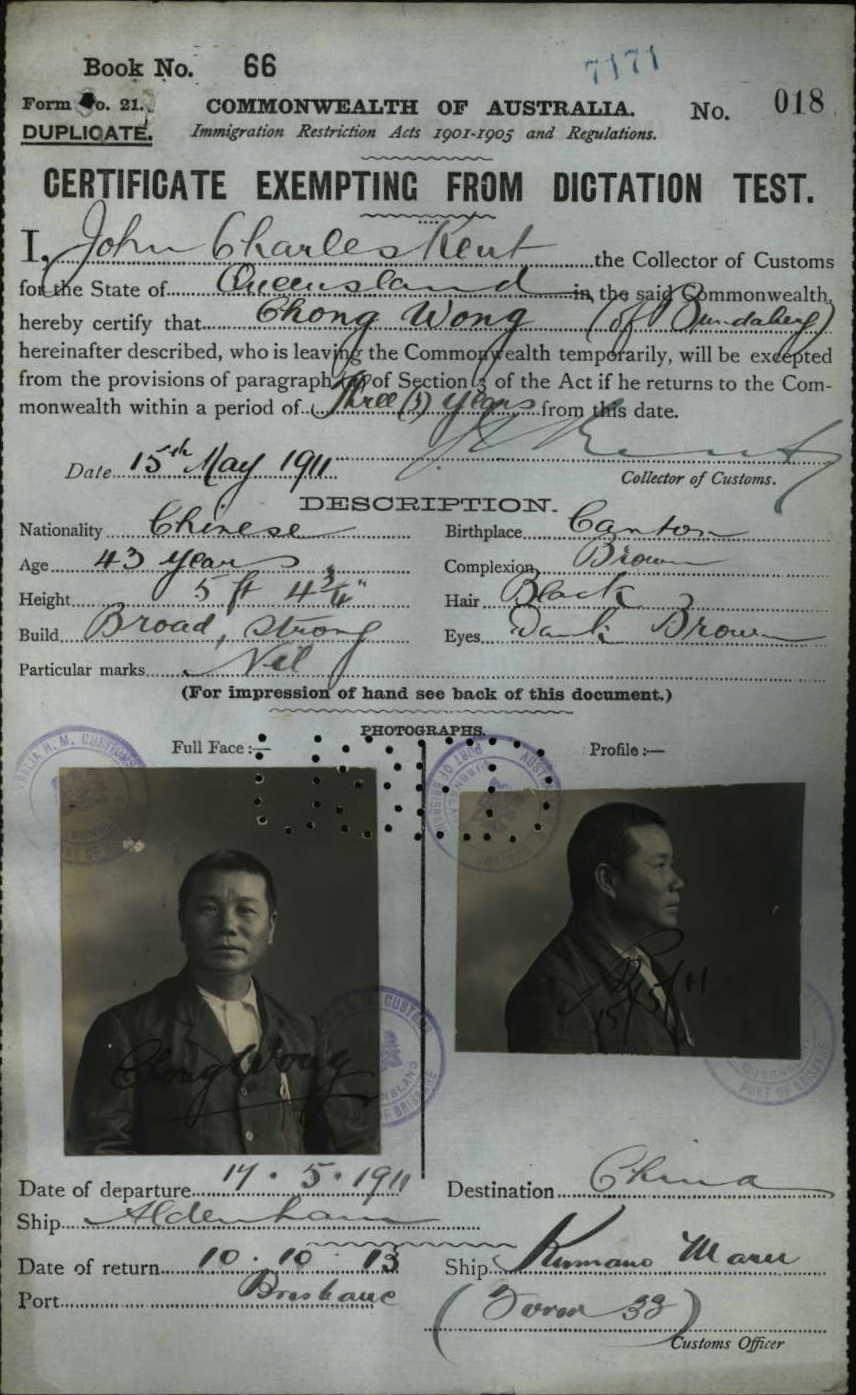 Book No. 66
7171
Form No. 21.
COMMONWEALTH OF AUSTRALIA.
No. 018
DUPLICATE.
Immigration Restriction Acts 1901-1905 and Regulations.
CERTIFICATE EXEMPTING FROM DICTATION TEST.
I, John Charles Kent the Collector of Customs
for the State of Queensland in the said Commonwealth,
hereby certify that Chong Wong (of Bundaberg)
hereinafter described, who is leaving the Commonwealth temporarily, will be excepted
from the provisions of paragraph (a) of Section 3 of the Act if he returns to the Com-
monwealth within a period of Three (3) years from this date.
Date 15th May 1911
Kent
Collector of Customs.
DESCRIPTION.
Nationality Chinese
Birthplace Canton
Age 43 years
Complexion Brown
Height 5 ft 4 3/4"
Hair Black
Build Broad, strong
Eyes Dark Brown
Particular marks Nil
(For impression of hand see back of this document.)
PHOTOGRAPHS.
Full Face :—
Profile :—
Chong Wong
15/5/11
Date of departure 17.5.1911
Destination China
Ship Aldenham
Date of return 10.10.13
Ship Kumano Maru
Port Brisbane
(Form 32)
Customs Officer